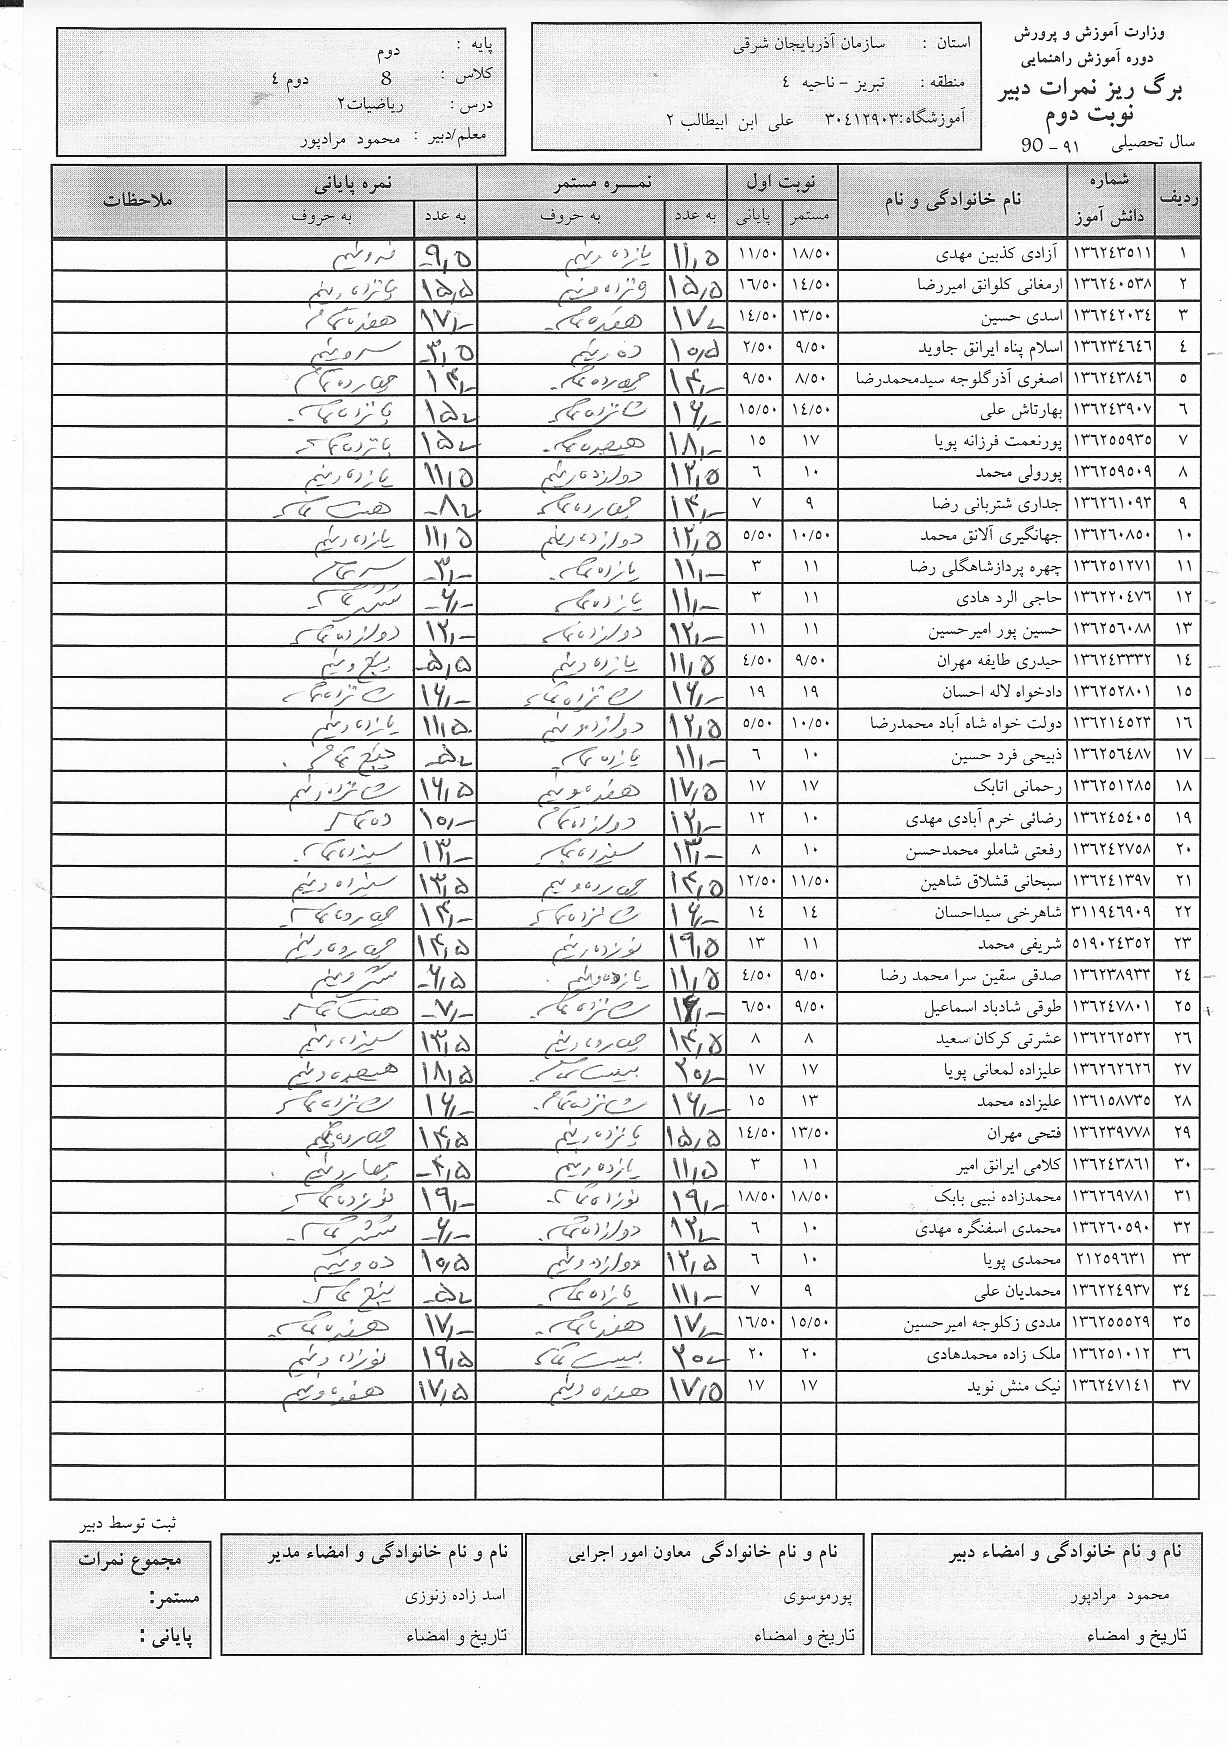 وزارت آموزش و پرورش
دوره آموزش راهنمایی
برگ ریز نمرات دبیر
نوبت دوم
سال تحصیلی ۹۱ - 90
استان : سازمان آذربایجان شرقی
منطقه : تبریز - ناحیه ٤
آموزشگاه: ۳۰٤۱۲۹۰۳ علی ابن ابیطالب ۲
پایه : دوم
کلاس : 8 دوم ٤
درس : ریاضیات۲
معلم/دبیر : محمود مرادپور
ردیف شماره دانش آموز نام خانوادگی و نام نوبت اول نمره مستمر نمره پایانی ملاحظات
مستمر پایانی به عدد به حروف به عدد به حروف
۱ ۱۳٦۲٤۳٥۱۱ آزادی کذبین مهدی ۱۸/٥۰ ۱۱/٥۰ ۱۱٫۵ یازده ونیم ۹٫۵ نه ونیم
۲ ۱۳٦۲٤۰٥۳۸ ارمغانی کلوانق امیررضا ۱٤/٥۰ ۱٦/٥۰ ۱۵٫۵ پانزده ونیم ۱۵٫۵ پانزده ونیم
۳ ۱۳٦۲٤۲۰۳٤ اسدی حسین ۱۳/٥۰ ۱٤/٥۰ ۱۷ هفده تمام ۱۷ هفده تمام
٤ ۱۳٦۲۳٤٦٤٦ اسلام پناه ایرانق جاوید ۹/٥۰ ۲/٥۰ ۱۰٫۵ ده ونیم ۳٫۵ سه ونیم
٥ ۱۳٦۲٤۳۸٤٦ اصغری آذرگلوجه سیدمحمدرضا ۸/٥۰ ۹/٥۰ ۱۴ چهارده تمام ۱۴ چهارده تمام
٦ ۱۳٦۲٤۳۹۰۷ بهارتاش علی ۱٤/٥۰ ۱٥/٥۰ ۱۶ شانزده تمام ۱۵ پانزده تمام
۷ ۱۳٦۲٥٥۹۳٥ پورنعمت فرزانه پویا ۱۷ ۱٥ ۱۸ هیجده تمام ۱۵ پانزده تمام
۸ ۱۳٦۲٥۹٥۰۹ پورولی محمد ۱۰ ٦ ۱۲٫۵ دوازده ونیم ۱۱٫۵ یازده ونیم
۹ ۱۳٦۲٦۱۰۹۳ جداری شتربانی رضا ۹ ۷ ۱۴ چهارده تمام ۸ هشت تمام
۱۰ ۱۳٦۲٦۰۸٥۰ جهانگیری آلانق محمد ۱۰/٥۰ ٥/٥۰ ۱۲٫۵ دوازده ونیم ۱۱٫۵ یازده ونیم
۱۱ ۱۳٦۲٥۱۲۷۱ چهره پردازشاهگلی رضا ۱۱ ۳ ۱۱ یازده تمام ۳ سه تمام
۱۲ ۱۳٦۲۲۰٤۷٦ حاجی الرد هادی ۱۱ ۳ ۱۱ یازده تمام ۶ شش تمام
۱۳ ۱۳٦۲٥٦۰۸۸ حسین پور امیرحسین ۱۱ ۱۱ ۱۲ دوازده تمام ۱۲ دوازده تمام
۱٤ ۱۳٦۲٤۳۳۳۲ حیدری طایفه مهران ۹/٥۰ ٤/٥۰ ۱۱٫۵ یازده ونیم ۵٫۵ پنج ونیم
۱٥ ۱۳٦۲٥۲۸۰۱ دادخواه لاله احسان ۱۹ ۱۹ ۱۶ شانزده تمام ۱۶ شانزده تمام
۱٦ ۱۳٦۲۱٤٥۲۳ دولت خواه شاه آباد محمدرضا ۱۰/٥۰ ٥/٥۰ ۱۲٫۵ دوازده ونیم ۱۱٫۵ یازده ونیم
۱۷ ۱۳٦۲٥٦٤۸۷ ذبیحی فرد حسین ۱۰ ٦ ۱۱ یازده تمام ۵ پنج تمام
۱۸ ۱۳٦۲٥۱۲۸٥ رحمانی اتابک ۱۷ ۱۷ ۱۷٫۵ هفده ونیم ۱۶٫۵ شانزده ونیم
۱۹ ۱۳٦۲٤٥٤۰٥ رضائی خرم آبادی مهدی ۱۰ ۱۲ ۱۲ دوازده تمام ۱۰ ده تمام
۲۰ ۱۳٦۲٤۲۷٥۸ رفعتی شاملو محمدحسن ۱۰ ۸ ۱۳ سیزده تمام ۱۳ سیزده تمام
۲۱ ۱۳٦۲٤۱۳۹۷ سبحانی قشلاق شاهین ۱۱/٥۰ ۱۲/٥۰ ۱۴٫۵ چهارده ونیم ۱۳٫۵ سیزده ونیم
۲۲ ۳۱۱۹٤٦۹۰۹ شاهرخی سیداحسان ۱٤ ۱٤ ۱۶ شانزده تمام ۱۴ چهارده تمام
۲۳ ٥۱۹۰۲٤۳٥۲ شریفی محمد ۱۱ ۱۳ ۱۹٫۵ نوزده ونیم ۱۴٫۵ چهارده ونیم
۲٤ ۱۳٦۲۳۸۹۳۳ صدقی سقین سرا محمد رضا ۹/٥۰ ٤/٥۰ ۱۱٫۵ یازده ونیم ۶٫۵ شش ونیم
۲٥ ۱۳٦۲٤۷۸۰۱ طوقی شادباد اسماعیل ۹/٥۰ ٦/٥۰ ۱۶ شانزده تمام ۷ هفت تمام
۲٦ ۱۳٦۲٦۲٥۳۲ عشرتی کرکان سعید ۸ ۸ ۱۴٫۵ چهارده ونیم ۱۳٫۵ سیزده ونیم
۲۷ ۱۳٦۲٦۲٦۲٦ علیزاده لمعانی پویا ۱۷ ۱۷ ۲۰ بیست تمام ۱۸٫۵ هیجده ونیم
۲۸ ۱۳٦۱٥۸۷۳٥ علیزاده محمد ۱۳ ۱٥ ۱۶ شانزده تمام ۱۶ شانزده تمام
۲۹ ۱۳٦۲۳۹۷۷۸ فتحی مهران ۱۳/٥۰ ۱٤/٥۰ ۱۵٫۵ پانزده ونیم ۱۴٫۵ چهارده ونیم
۳۰ ۱۳٦۲٤۳۸٦۱ کلامی ایرانق امیر ۱۱ ۳ ۱۱٫۵ یازده ونیم ۴٫۵ چهار ونیم
۳۱ ۱۳٦۲٦۹۷۸۱ محمدزاده نبیی بابک ۱۸/٥۰ ۱۸/٥۰ ۱۹ نوزده تمام ۱۹ نوزده تمام
۳۲ ۱۳٦۲٦۰٥۹۰ محمدی اسفنگره مهدی ۱۰ ٦ ۱۲ دوازده تمام ۶ شش تمام
۳۳ ۲۱۲٥۹٦۳۱ محمدی پویا ۱۰ ٦ ۱۲٫۵ دوازده ونیم ۱۰٫۵ ده ونیم
۳٤ ۱۳٦۲۲٤۹۳۷ محمدیان علی ۹ ۷ ۱۱ یازده تمام ۵ پنج تمام
۳٥ ۱۳٦۲٥٥٥۲۹ مددی زکلوجه امیرحسین ۱٥/٥۰ ۱٦/٥۰ ۱۷ هفده تمام ۱۷ هفده تمام
۳٦ ۱۳٦۲٥۱۰۱۲ ملک زاده محمدهادی ۲۰ ۲۰ ۲۰ بیست تمام ۱۹٫۵ نوزده ونیم
۳۷ ۱۳٦۲٤۷۱٤۱ نیک منش نوید ۱۷ ۱۷ ۱۷٫۵ هفده ونیم ۱۷٫۵ هفده ونیم
ثبت توسط دبیر
نام و نام خانوادگی و امضاء دبیر
محمود مرادپور
تاریخ و امضاء
نام و نام خانوادگی معاون امور اجرایی
پورموسوی
تاریخ و امضاء
نام و نام خانوادگی و امضاء مدیر
اسد زاده زنوزی
تاریخ و امضاء
مجموع نمرات
مستمر:
پایانی :